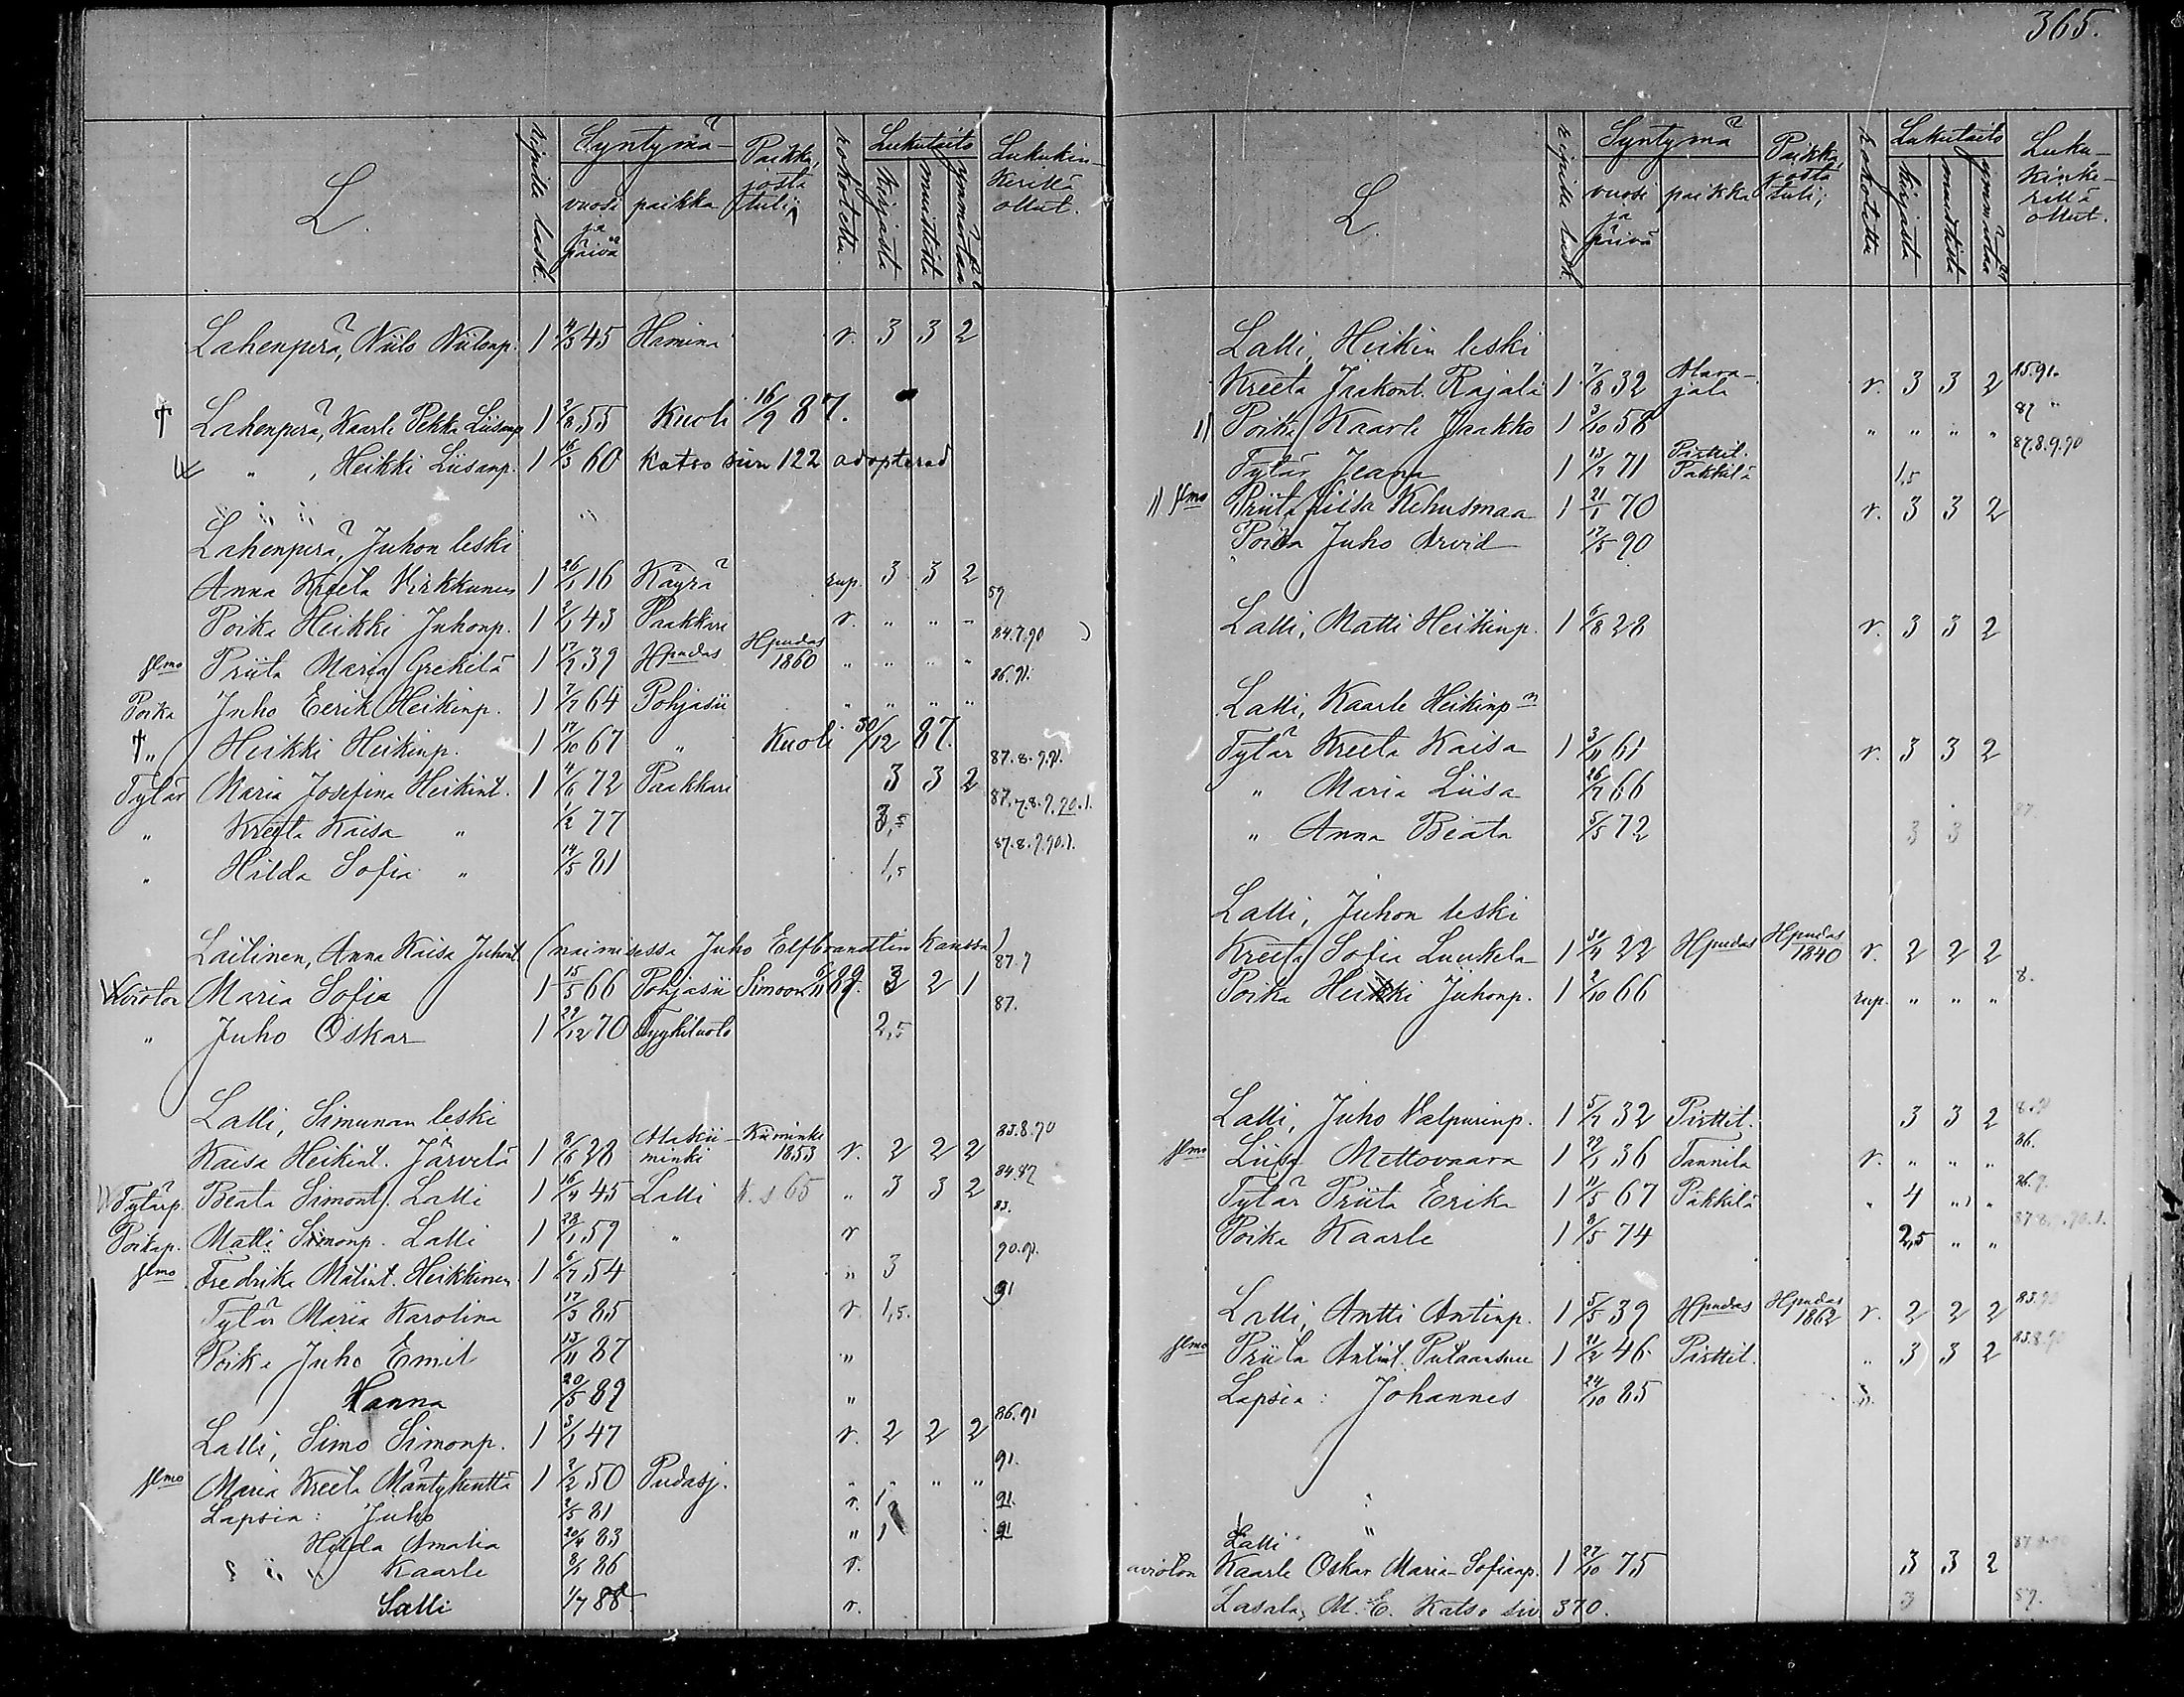 365.
L.
ripille lask.
Syntymä-
vuosi ja päivä
paikka
Paikka, josta tuli;
rokotettu.
Lukutaito
kirjasta
muistista
ymmärtää
Lukukinkerillä ollut.
Lahenperä, Niilo Niilonp. 1 4/3 45 Hamina r. 3 3 2
† Lahenperä, Kaarle Pekka Liisanp 1 2/8 55 Kuoli 16/9 87.
" , Heikki Liisanp. 1 16/3 60 katso sivu 122 adopterad
Lahenperä, Juhon leski
Anna Kreeta Virkkunen 1 26/1 16 Käyrä rup. 3 3 2
Poika Heikki Juhonp. 1 2/1 43 Paakkari r. " " " 59
Vmo Priita Maria Grekilä 1 17/7 39 Hpudas Hpudas 1860 " " " " 84.7.90
Poika Juho Eerik Heikinp. 1 7/7 64 Pohjasii " " " " 86.91.
† " Heikki Heikinp. 1 17/10 67 " Kuoli 30/12 87.
Tytär Maria Josefina Heikint. 1 4/6 72 Paakkari 3 3 2 87.8.9.91.
" Kreeta Kaisa " 1/2 77 3,5 87.7.8.9.90.1.
" Hilda Sofia " 14/5 81 1,5 87.8.9.90.1.
Laitinen, Anna Kaisa Juhont. (naimisessa Juho Elfbrandtin kanssa)
Avioton Maria Sofia 1 15/5 66 Pohjasii Simoon 6/11 89. 3 2 1 87.9
" Juho Oskar 1 29/12 70 Tyykiluoto 2,5 87.
Lalli, Simunan leski
Kaisa Heikint. Järvelä 1 8/6 28 Alakiiminki Kiiminki 1853 r. 2 2 2 83.8.90
Tytärp. Beata Simont. Lalli 1 16/4 45 Lalli 65 " 3 3 2 84.87
Poikap. Matti Simonp. Lalli 1 28/1 59 " r 83.
Vmo Fredrika Matint. Heikkinen 1 6/7 54 " 3 90.91.
Tytär Maria Karolina 17/3 85 r. 1,5. 91
Poika Juho Emil 13/11 87 "
Hanna 20/5 89 "
Lalli, Simo Simonp. 1 3/1 47 r. 2 2 2 86.91
Vmo Maria Kreeta Mäntykenttä 1 2/2 50 Pudasj. " " " " 91.
Lapsia: Juho 2/5 81 r. 1 91.
Hilda Amalia 20/4 83 " 1 91
Kaarle 8/1 86 r.
Salli 1/7 88 r.
L.
ripille lask.
Syntymä
vuosi ja päivä
paikka
Paikka, josta tuli;
rokotettu
Lukutaito
kirjasta
muistista
ymmärtää
Lukukinkerillä ollut.
Lalli, Heikin leski
Kreeta Jaakont. Rajala 1 7/8 32 Alarajala r. 3 3 2 85.91.
Poika Kaarle Jaakko 1 3/10 58 " " " " 87 "
Tytär Jeana 1 13/7 71 Pirttit. Pakkilä 1,5 87.8.9.90
Vmo Priita Liisa Kehusmaa 1 21/1 70 r. 3 3 2
Poika Juho Arvid 17/5 90
Lalli, Matti Heikinp. 1 6/8 28 r. 3 3 2
Lalli, Kaarle Heikinp
Tytär Kreeta Kaisa 1 3/11 61 r. 3 3 2
" Maria Liisa 26/7 66
" Anna Beata 5/5 72 3 3 87.
Lalli, Juhon leski
Kreeta Sofia Luukela 1 30/4 22 Hpudas Hpudas 1840 r. 2 2 2
Poika Heikki Juhonp. 1 2/10 66 rup. " " " 8.
Lalli, Juho Valpurinp. 1 5/7 32 Pirttit. 3 3 2
Vmo Liisa Mettovaara 1 22/1 36 Tannila r. " " " 86.
Tytär Priita Erika 1 11/5 67 Pakkilä " 4 " " 86.9.
Poika Kaarle 1 8/5 74 2,5 " "
Lalli, Antti Antinp. 1 5/5 39 Hpudas Hpudas 1862 r. 2 2 2 83.90
Vmo Priita Antint. Putaansuu 1 21/2 46 Pirttit. " 3 3 2 83.8.90
Lapsia: Johannes 24/10 85 "
Lalli "
avioton Kaarle Oskar Maria-Sofianp. 1 27/10 75 3 3 2
Lasala, M. E. Katso siv 370. 3 87.